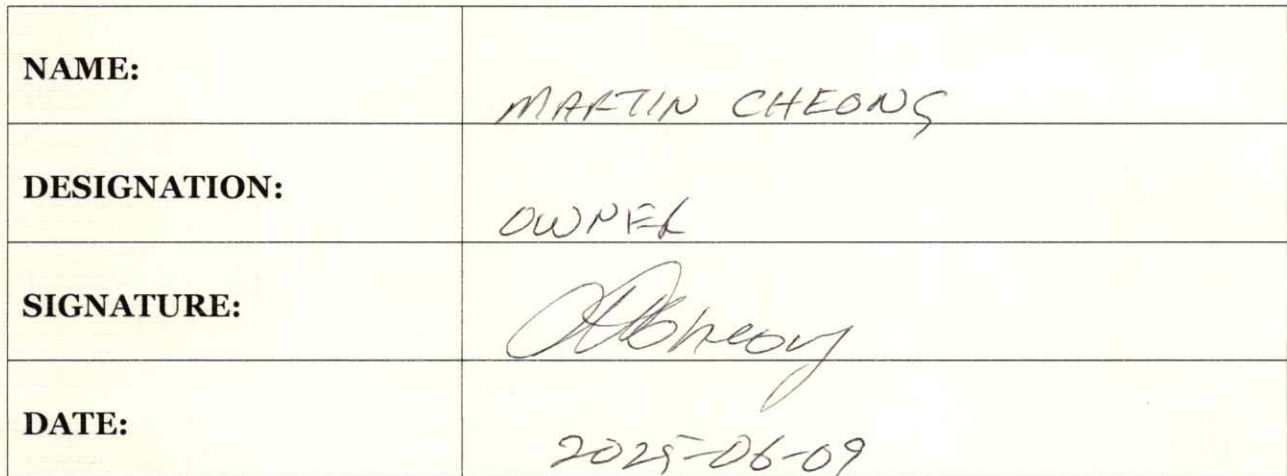 NAME: MARTIN CHEONG
DESIGNATION: OWNER
SIGNATURE:
DATE: 2025-06-09